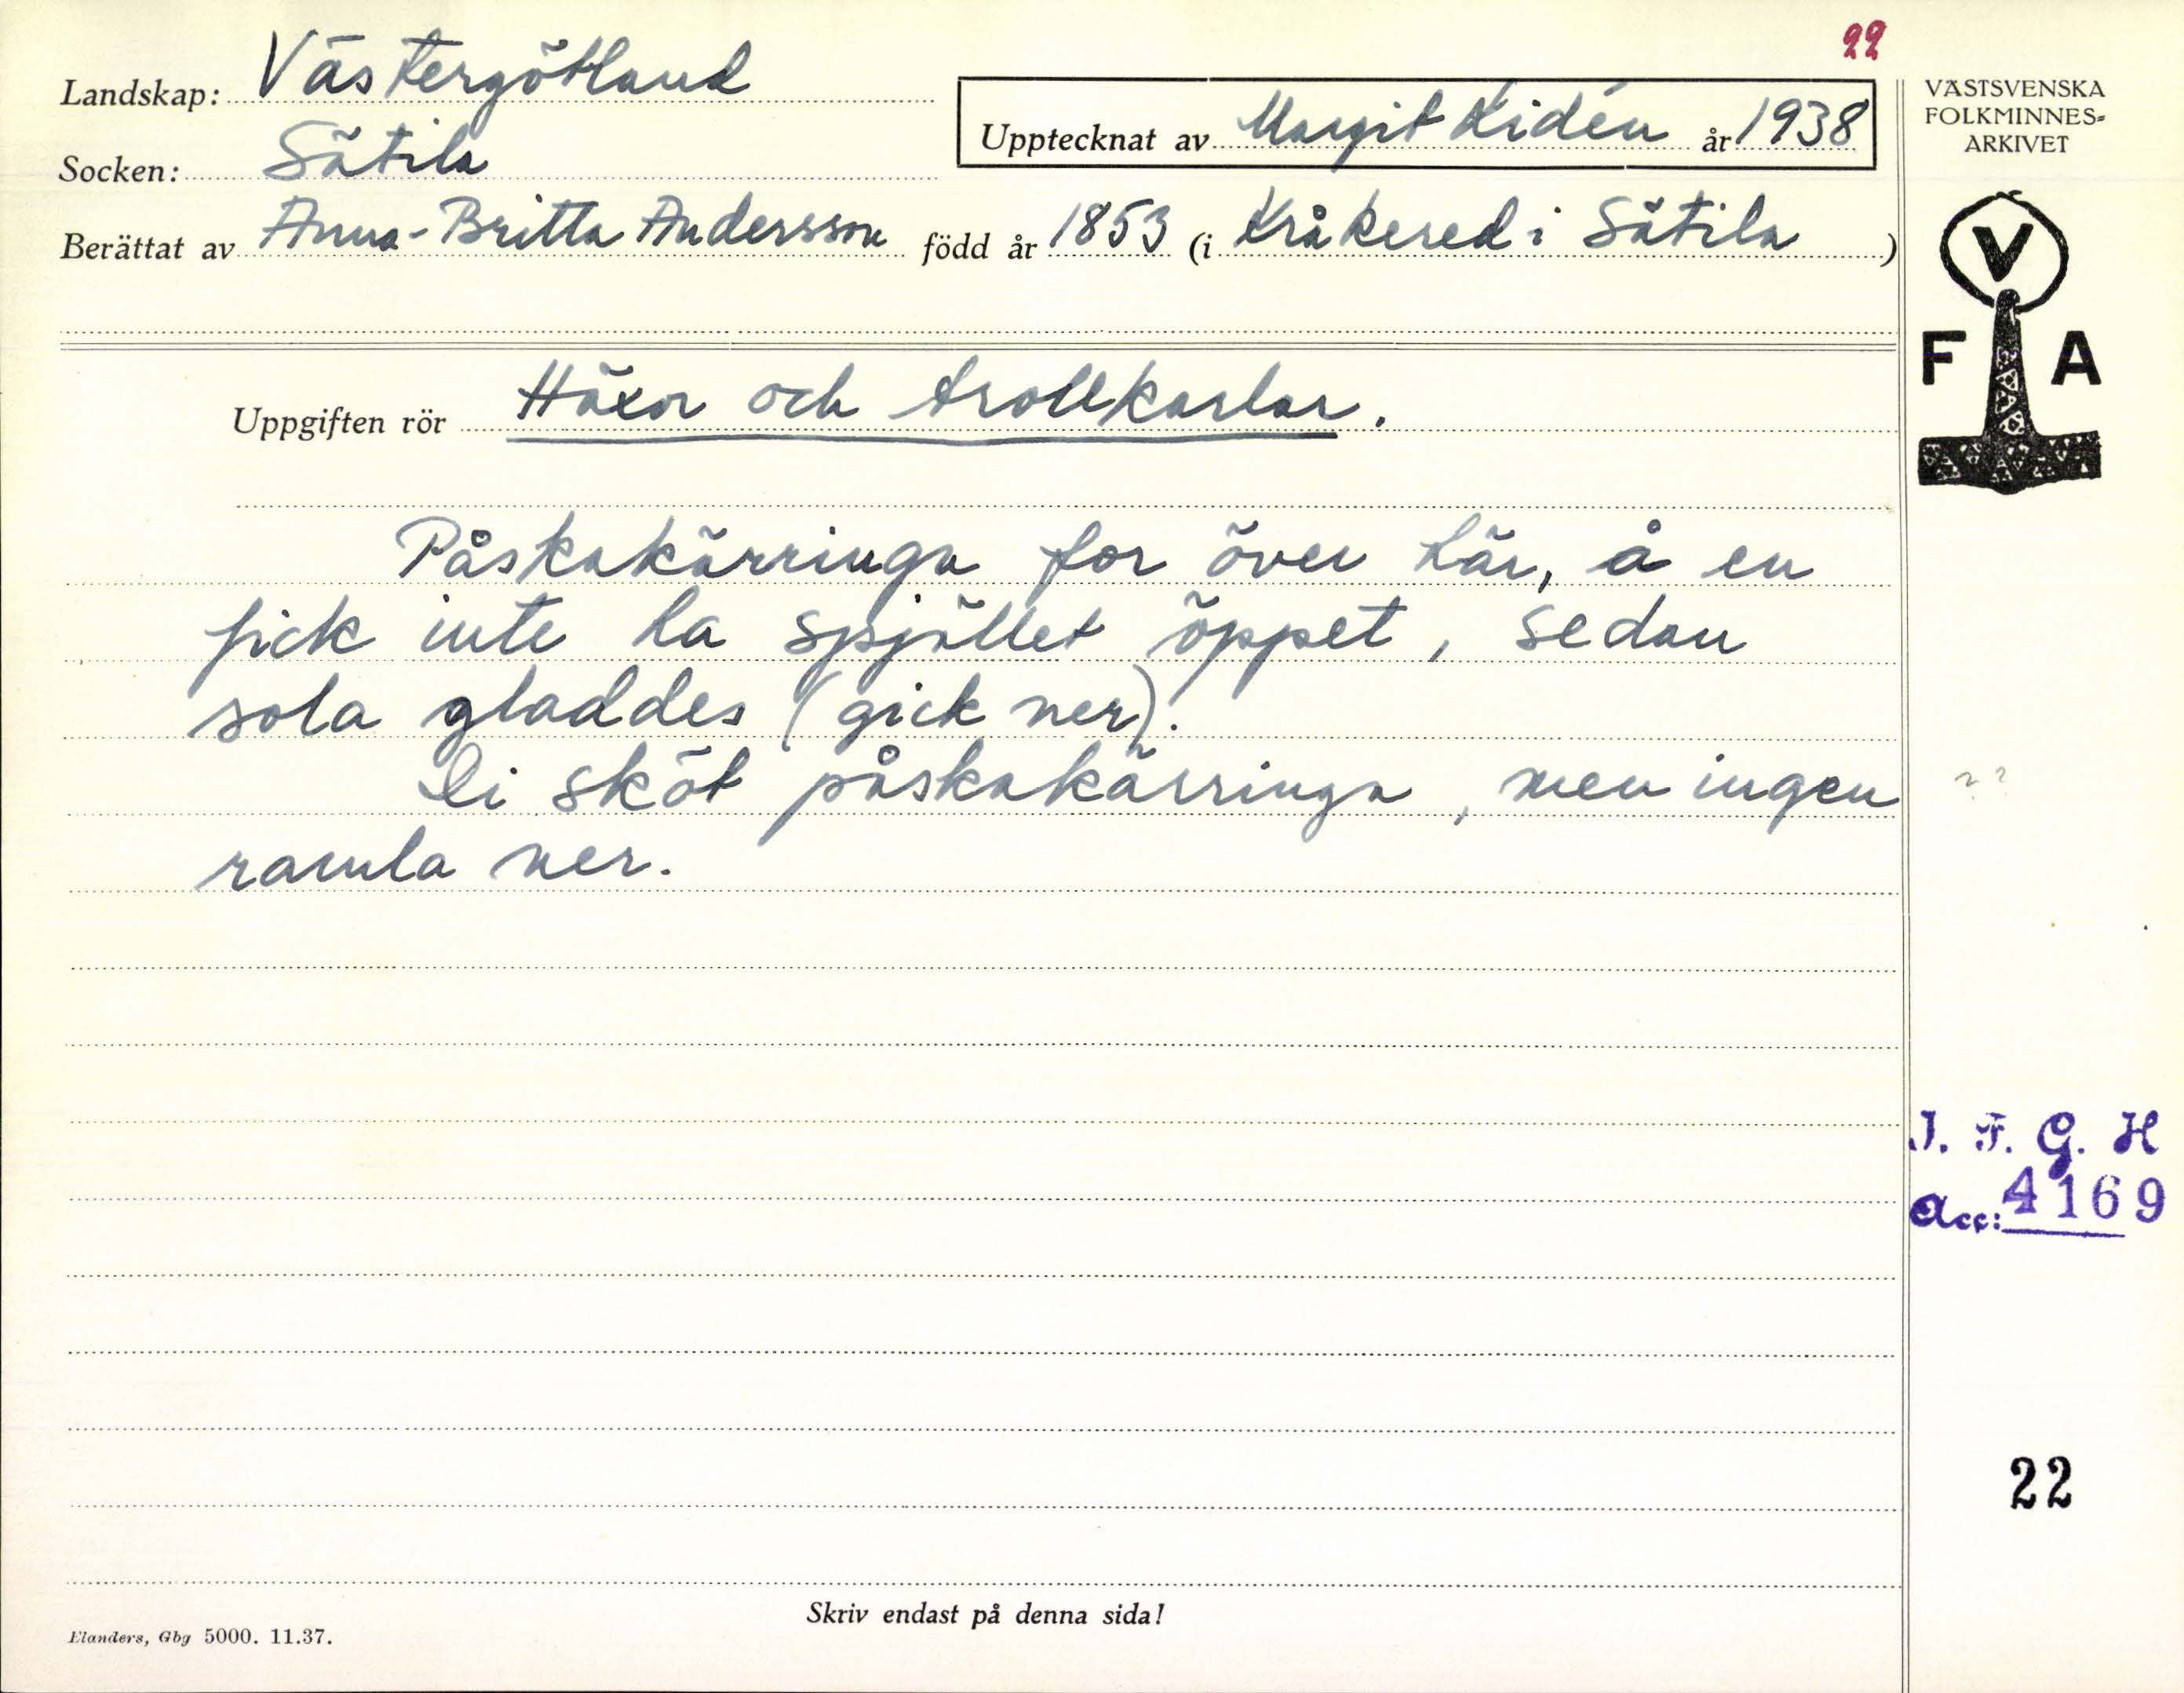 22
Landskap: Västergötland
Socken: Sätila
Upptecknat av Margit Lidén år 1938
Berättat av Anna-Britta Andersson född år 1853 (i Kråkered i Sätila)
VÄSTSVENSKA
FOLKMINNES-
ARKIVET
V
F A
Uppgiften rör Häxor och trollkarlar.
Påskakärringa for över här, å en
fick inte ha spjället öppet, sedan
sola gladdes (gick ner).
Di sköt påskakärringa, men ingen
ramla ner.
??
I. F. G. H
Acc: 4169
22
Skriv endast på denna sida!
Elanders, Gbg 5000. 11.37.